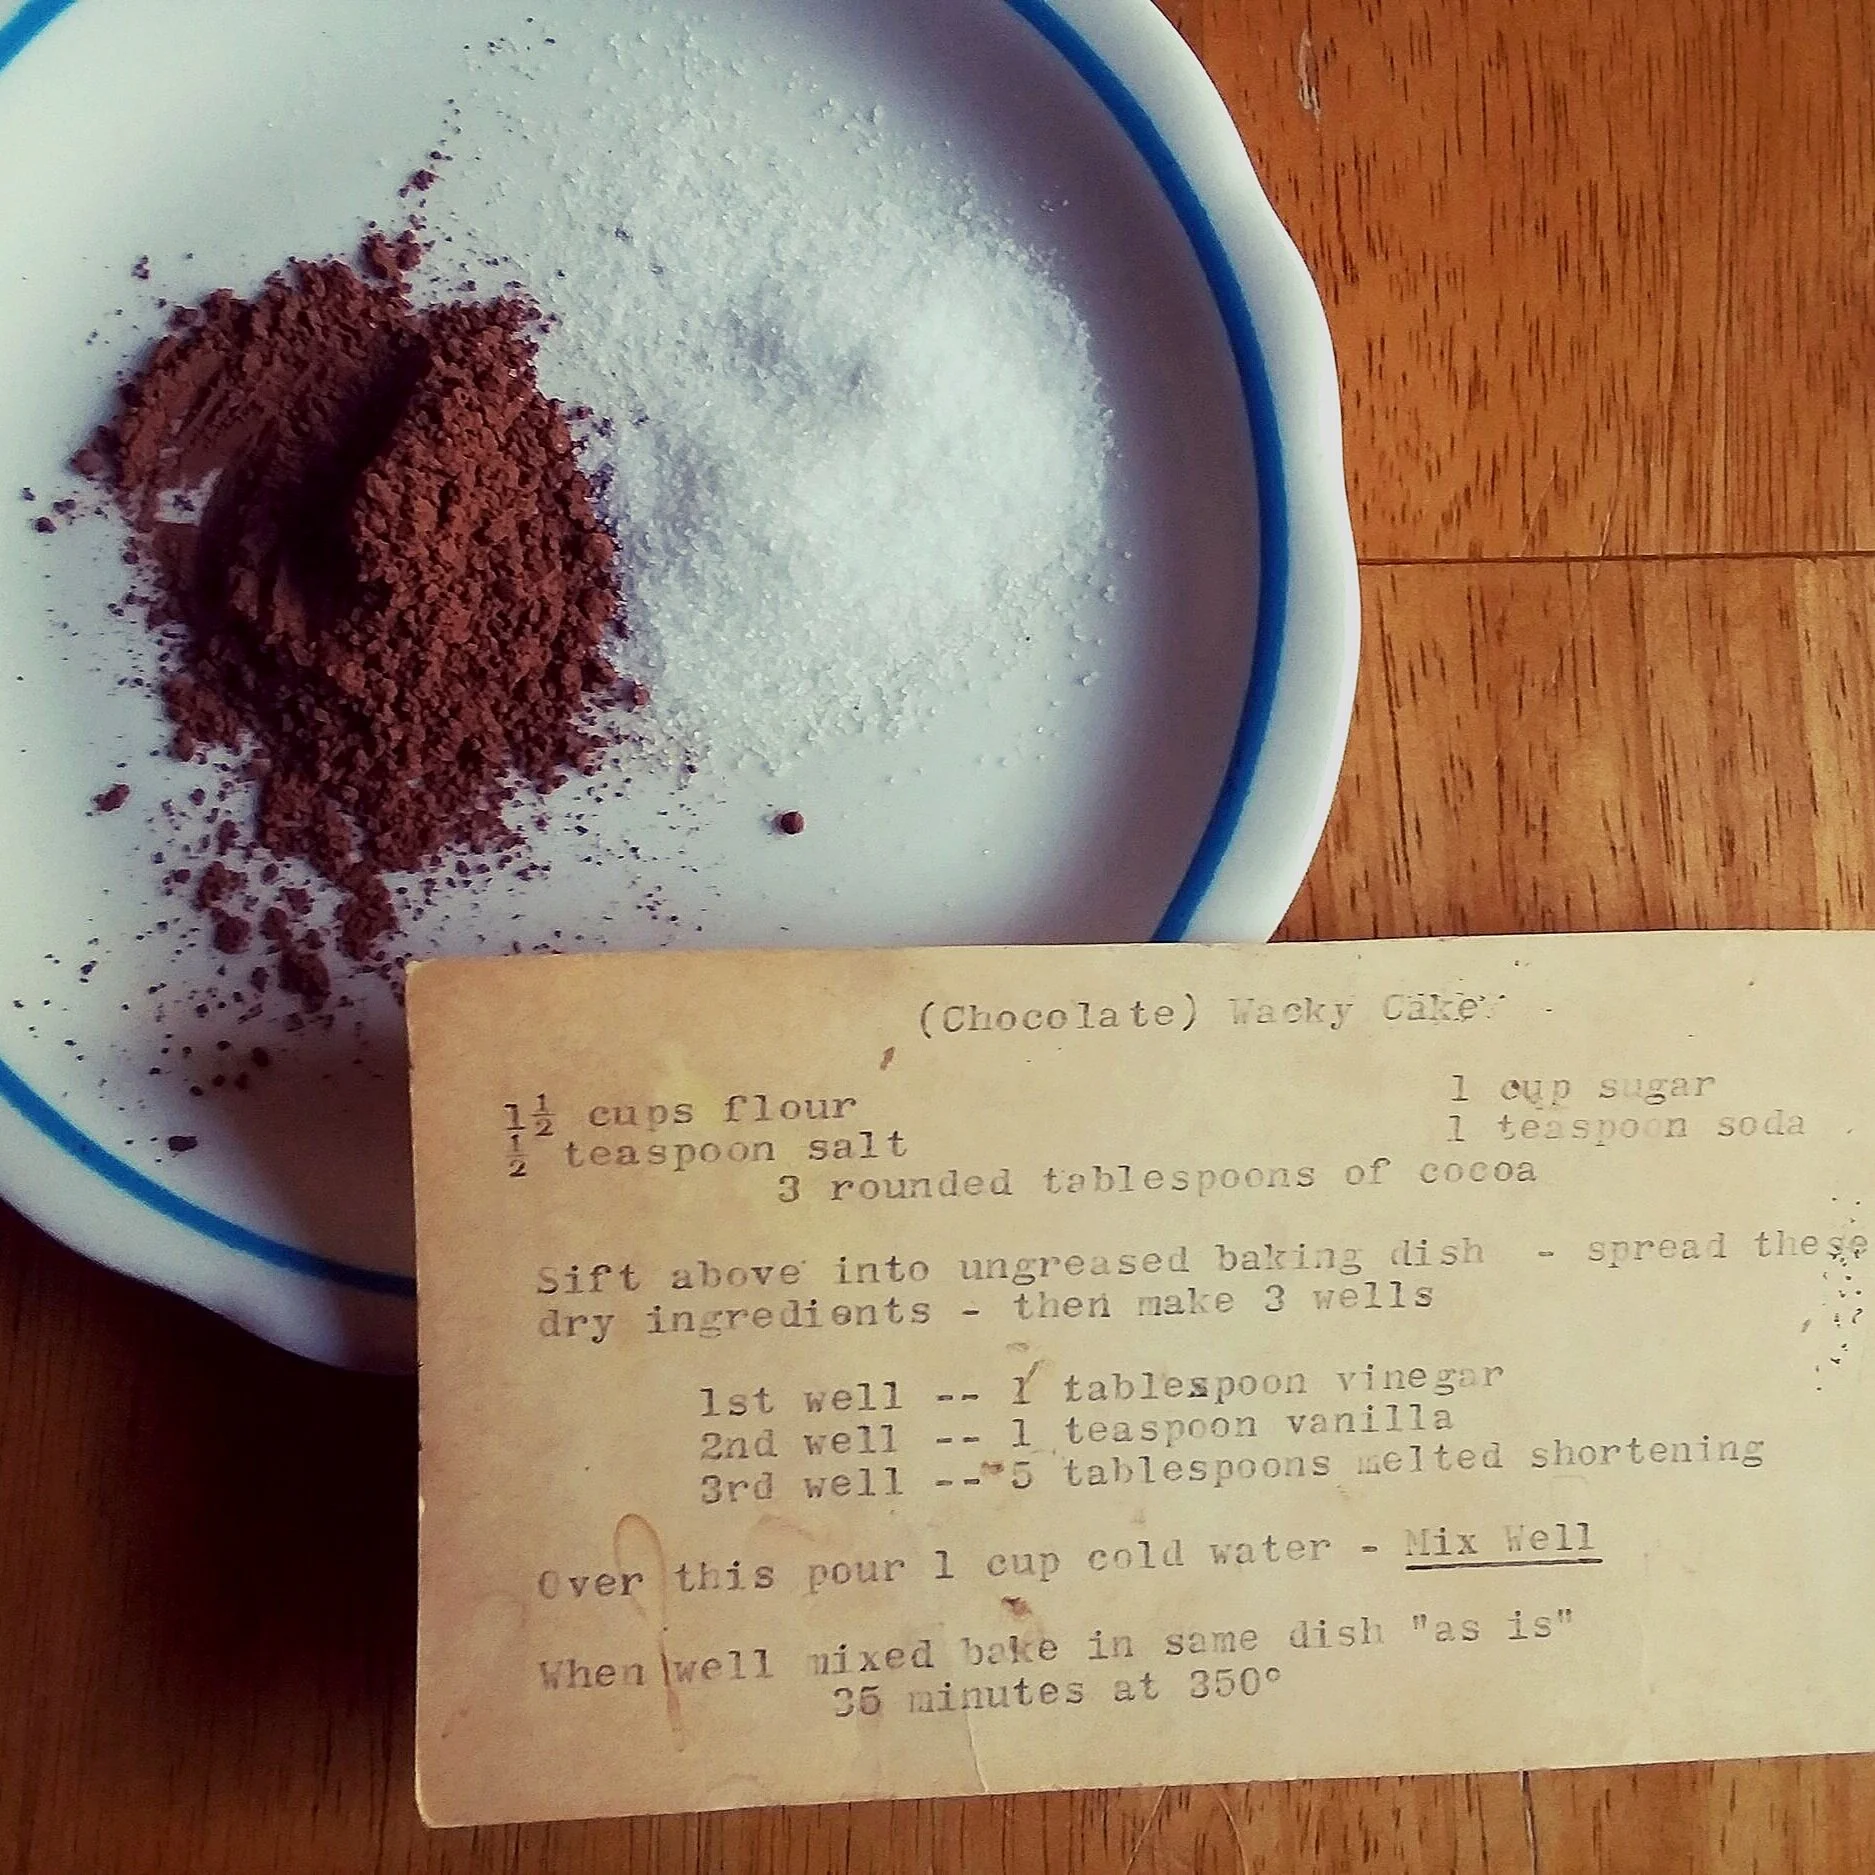 (Chocolate) Wacky Cake
1½ cups flour 1 cup sugar
½ teaspoon salt 1 teaspoon soda
3 rounded tablespoons of cocoa
Sift above into ungreased baking dish - spread these
dry ingredients - then make 3 wells
1st well -- 1 tablespoon vinegar
2nd well -- 1 teaspoon vanilla
3rd well -- 5 tablespoons melted shortening
Over this pour 1 cup cold water - Mix Well
When well mixed bake in same dish "as is"
35 minutes at 350°